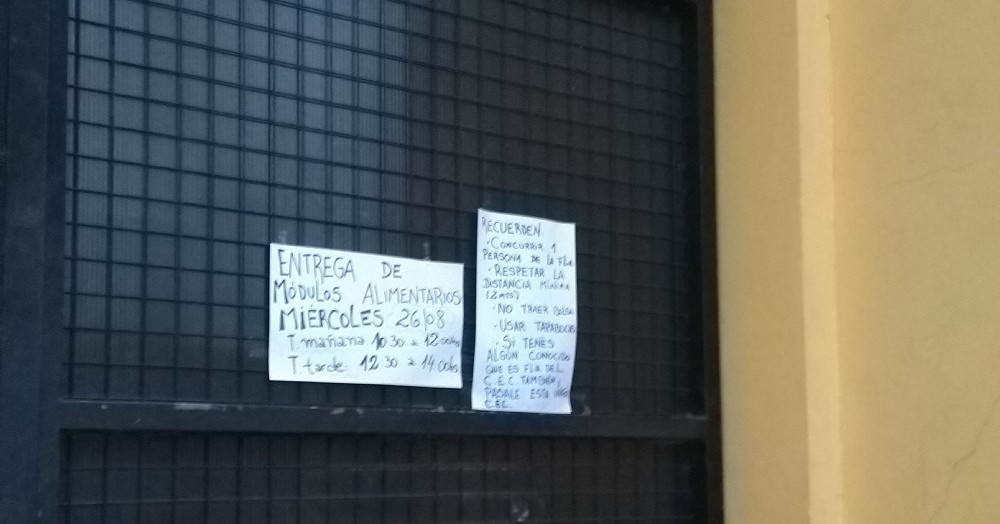 ENTREGA DE
MÓDULOS ALIMENTARIOS
MIÉRCOLES 26/08
T. mañana 10 30 a 12 00hs
T tarde: 12 30 a 14 00hs
RECUERDEN
• CONCURRIR 1
PERSONA DE LA FLIA
• RESPETAR LA
DISTANCIA MÍNIMA
(2 mts)
• NO TRAER BOLSA
• USAR TAPABOCAS
• SI TENÉS
ALGÚN CONOCIDO
QUE ES FLIA DEL
C.E.C. TAMBIÉN,
PASALE ESTA INFO
C.E.C.